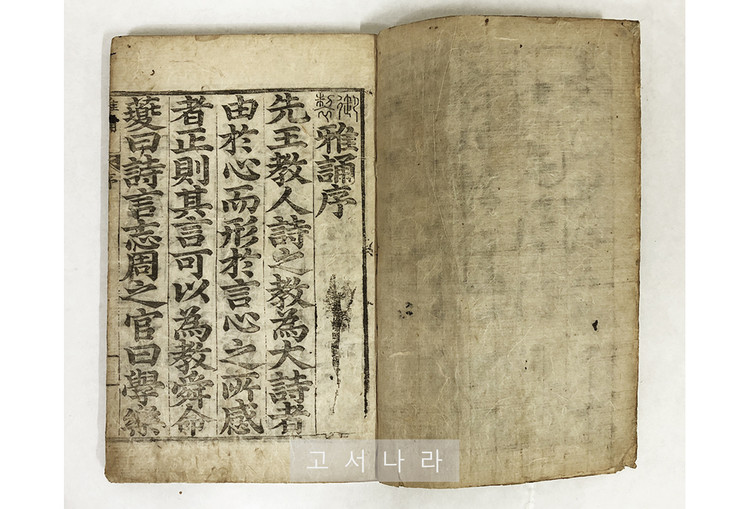 御製雅誦序
先王教人詩之教為大詩者
由於心而形於言心之所感
者正則其言可以為教舜命
夔曰詩言志周之官曰學樂
고서나라